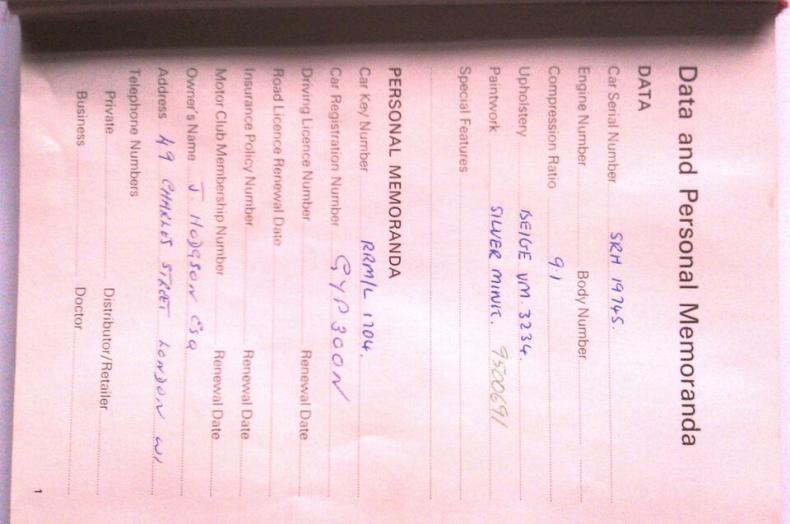 Data and Personal Memoranda
DATA
Car Serial Number SRH 19745.
Engine Number Body Number
Compression Ratio 9:1
Upholstery BEIGE VM. 3234.
Paintwork SILVER MINK. 9500691
Special Features
PERSONAL MEMORANDA
Car Key Number RRM/L 1704.
Car Registration Number GYP 300N
Driving Licence Number Renewal Date
Road Licence Renewal Date
Insurance Policy Number Renewal Date
Motor Club Membership Number Renewal Date
Owner's Name J. HODGSON ESQ
Address 49 CHARLES STREET LONDON W1
Telephone Numbers
Private Distributor/Retailer
Business Doctor
1